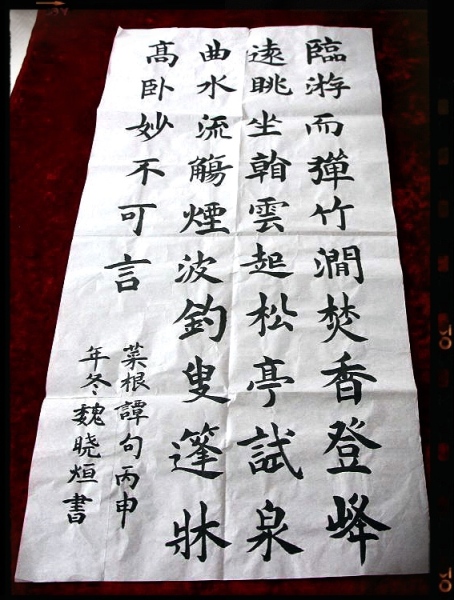 臨游而彈竹澗焚香登峰
遠眺坐翰雲起松亭試泉
曲水流觴煙波釣叟篷牀
高卧妙不可言
菜根譚句丙申
年冬魏晓烜書